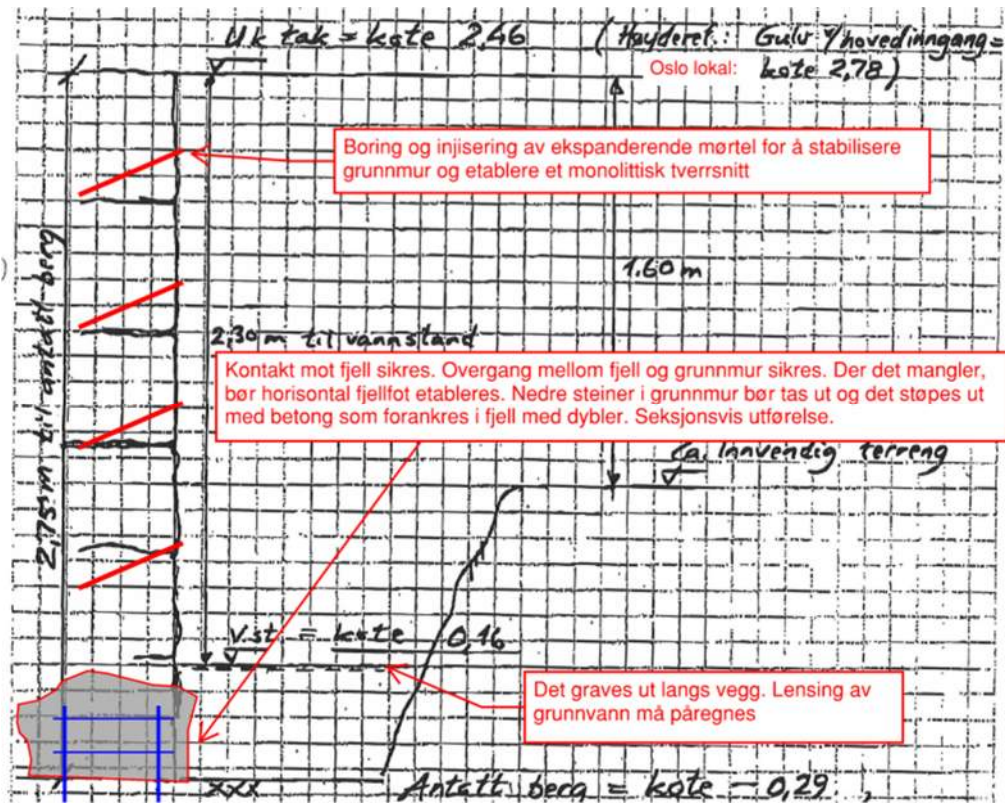 Uk tak = kote 2,46 (Høyderef.: Gulv v/hovedinngang =
Oslo lokal: kote 2,78)
Boring og injisering av ekspanderende mørtel for å stabilisere
grunnmur og etablere et monolittisk tverrsnitt
2,75m til antatt berg
1.60 m
2,30 m til vannstand
Kontakt mot fjell sikres. Overgang mellom fjell og grunnmur sikres. Der det mangler,
bør horisontal fjellfot etableres. Nedre steiner i grunnmur bør tas ut og det støpes ut
med betong som forankres i fjell med dybler. Seksjonsvis utførelse.
Ca. Innvendig terreng
V.st. = kote 0,16
Det graves ut langs vegg. Lensing av
grunnvann må påregnes
xxx Antatt berg = kote -0,29